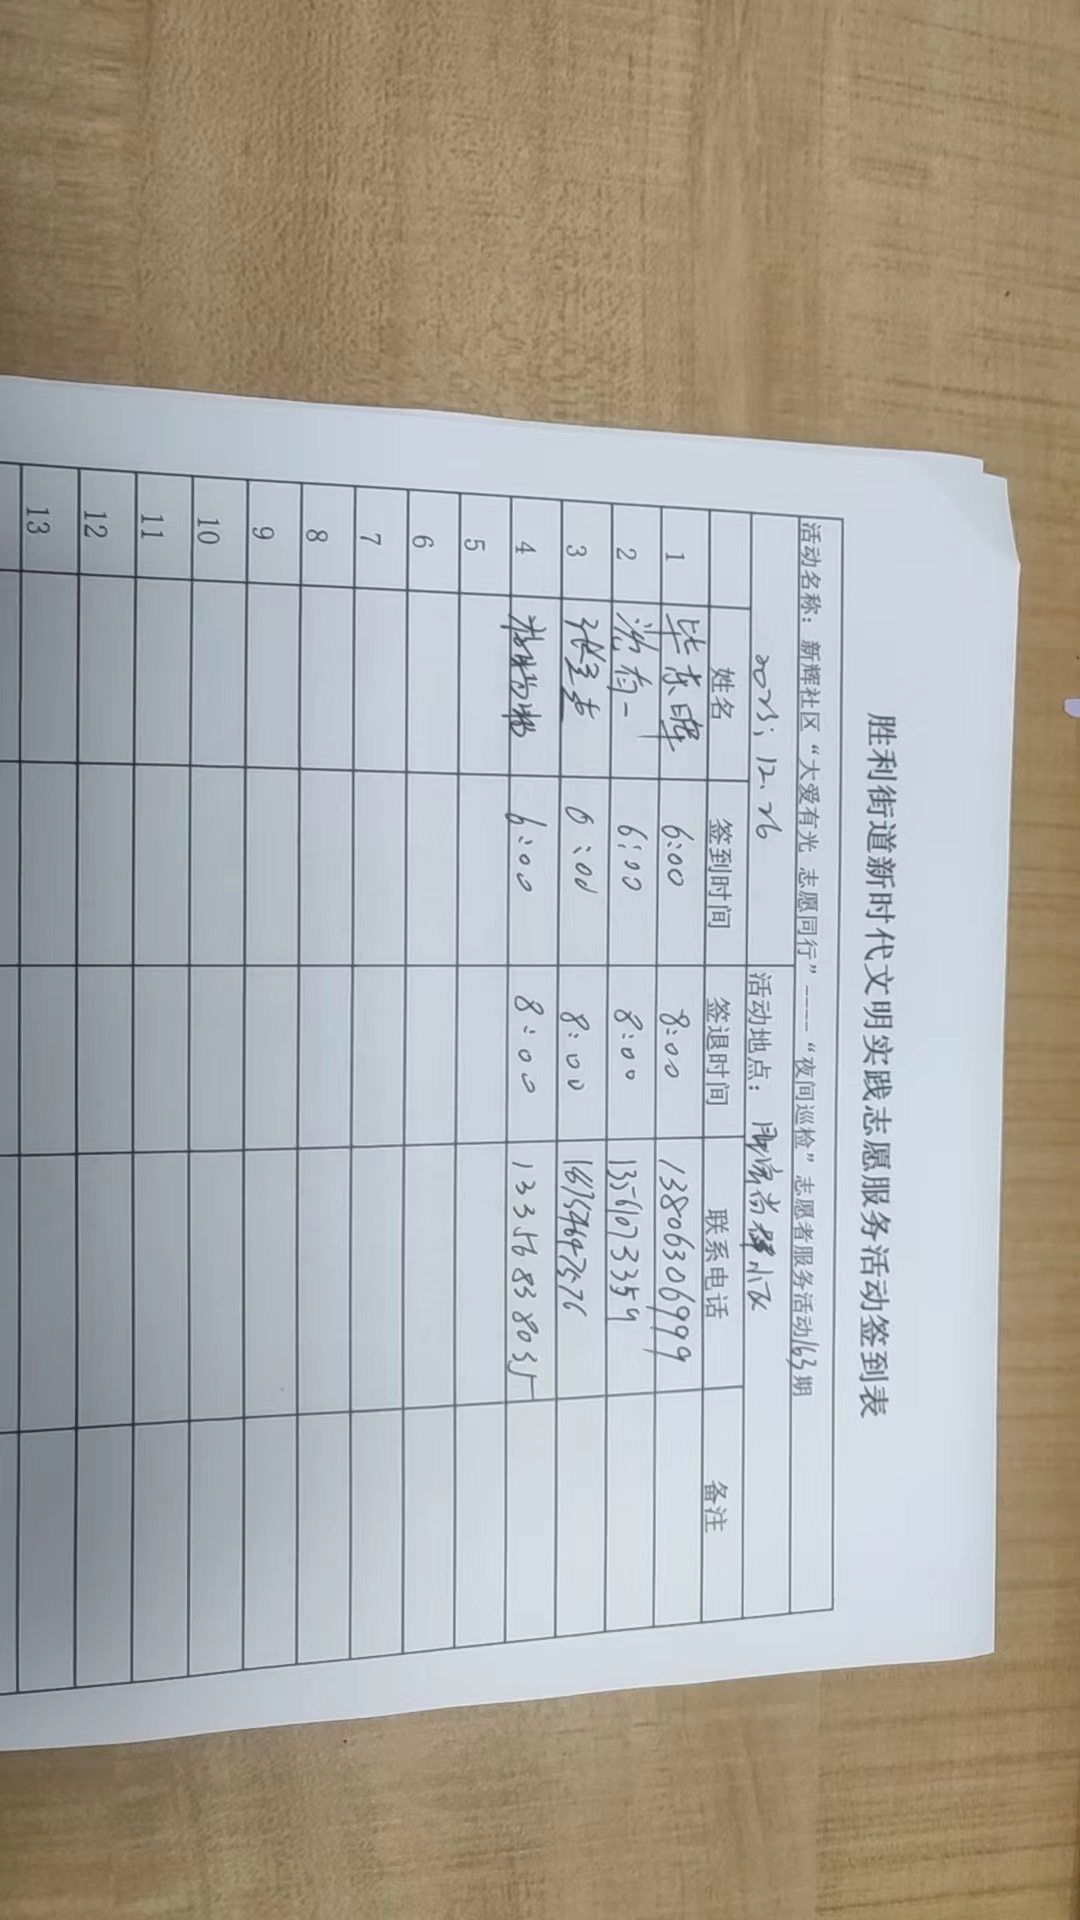 胜利街道新时代文明实践志愿服务活动签到表
活动名称：新辉社区“大爱有光 志愿同行”----“夜间巡检”志愿者服务活动163期
2023; 12. 26 活动地点： 尚 小区
姓名 签到时间 签退时间 联系电话 备注
1 毕东晖 6:00 8:00 13806306999
2 沈 一 6:00 8:00 13561073359
3 张 6:00 8:00
4 6:00 8:00 13356838035
5
6
7
8
9
10
11
12
13